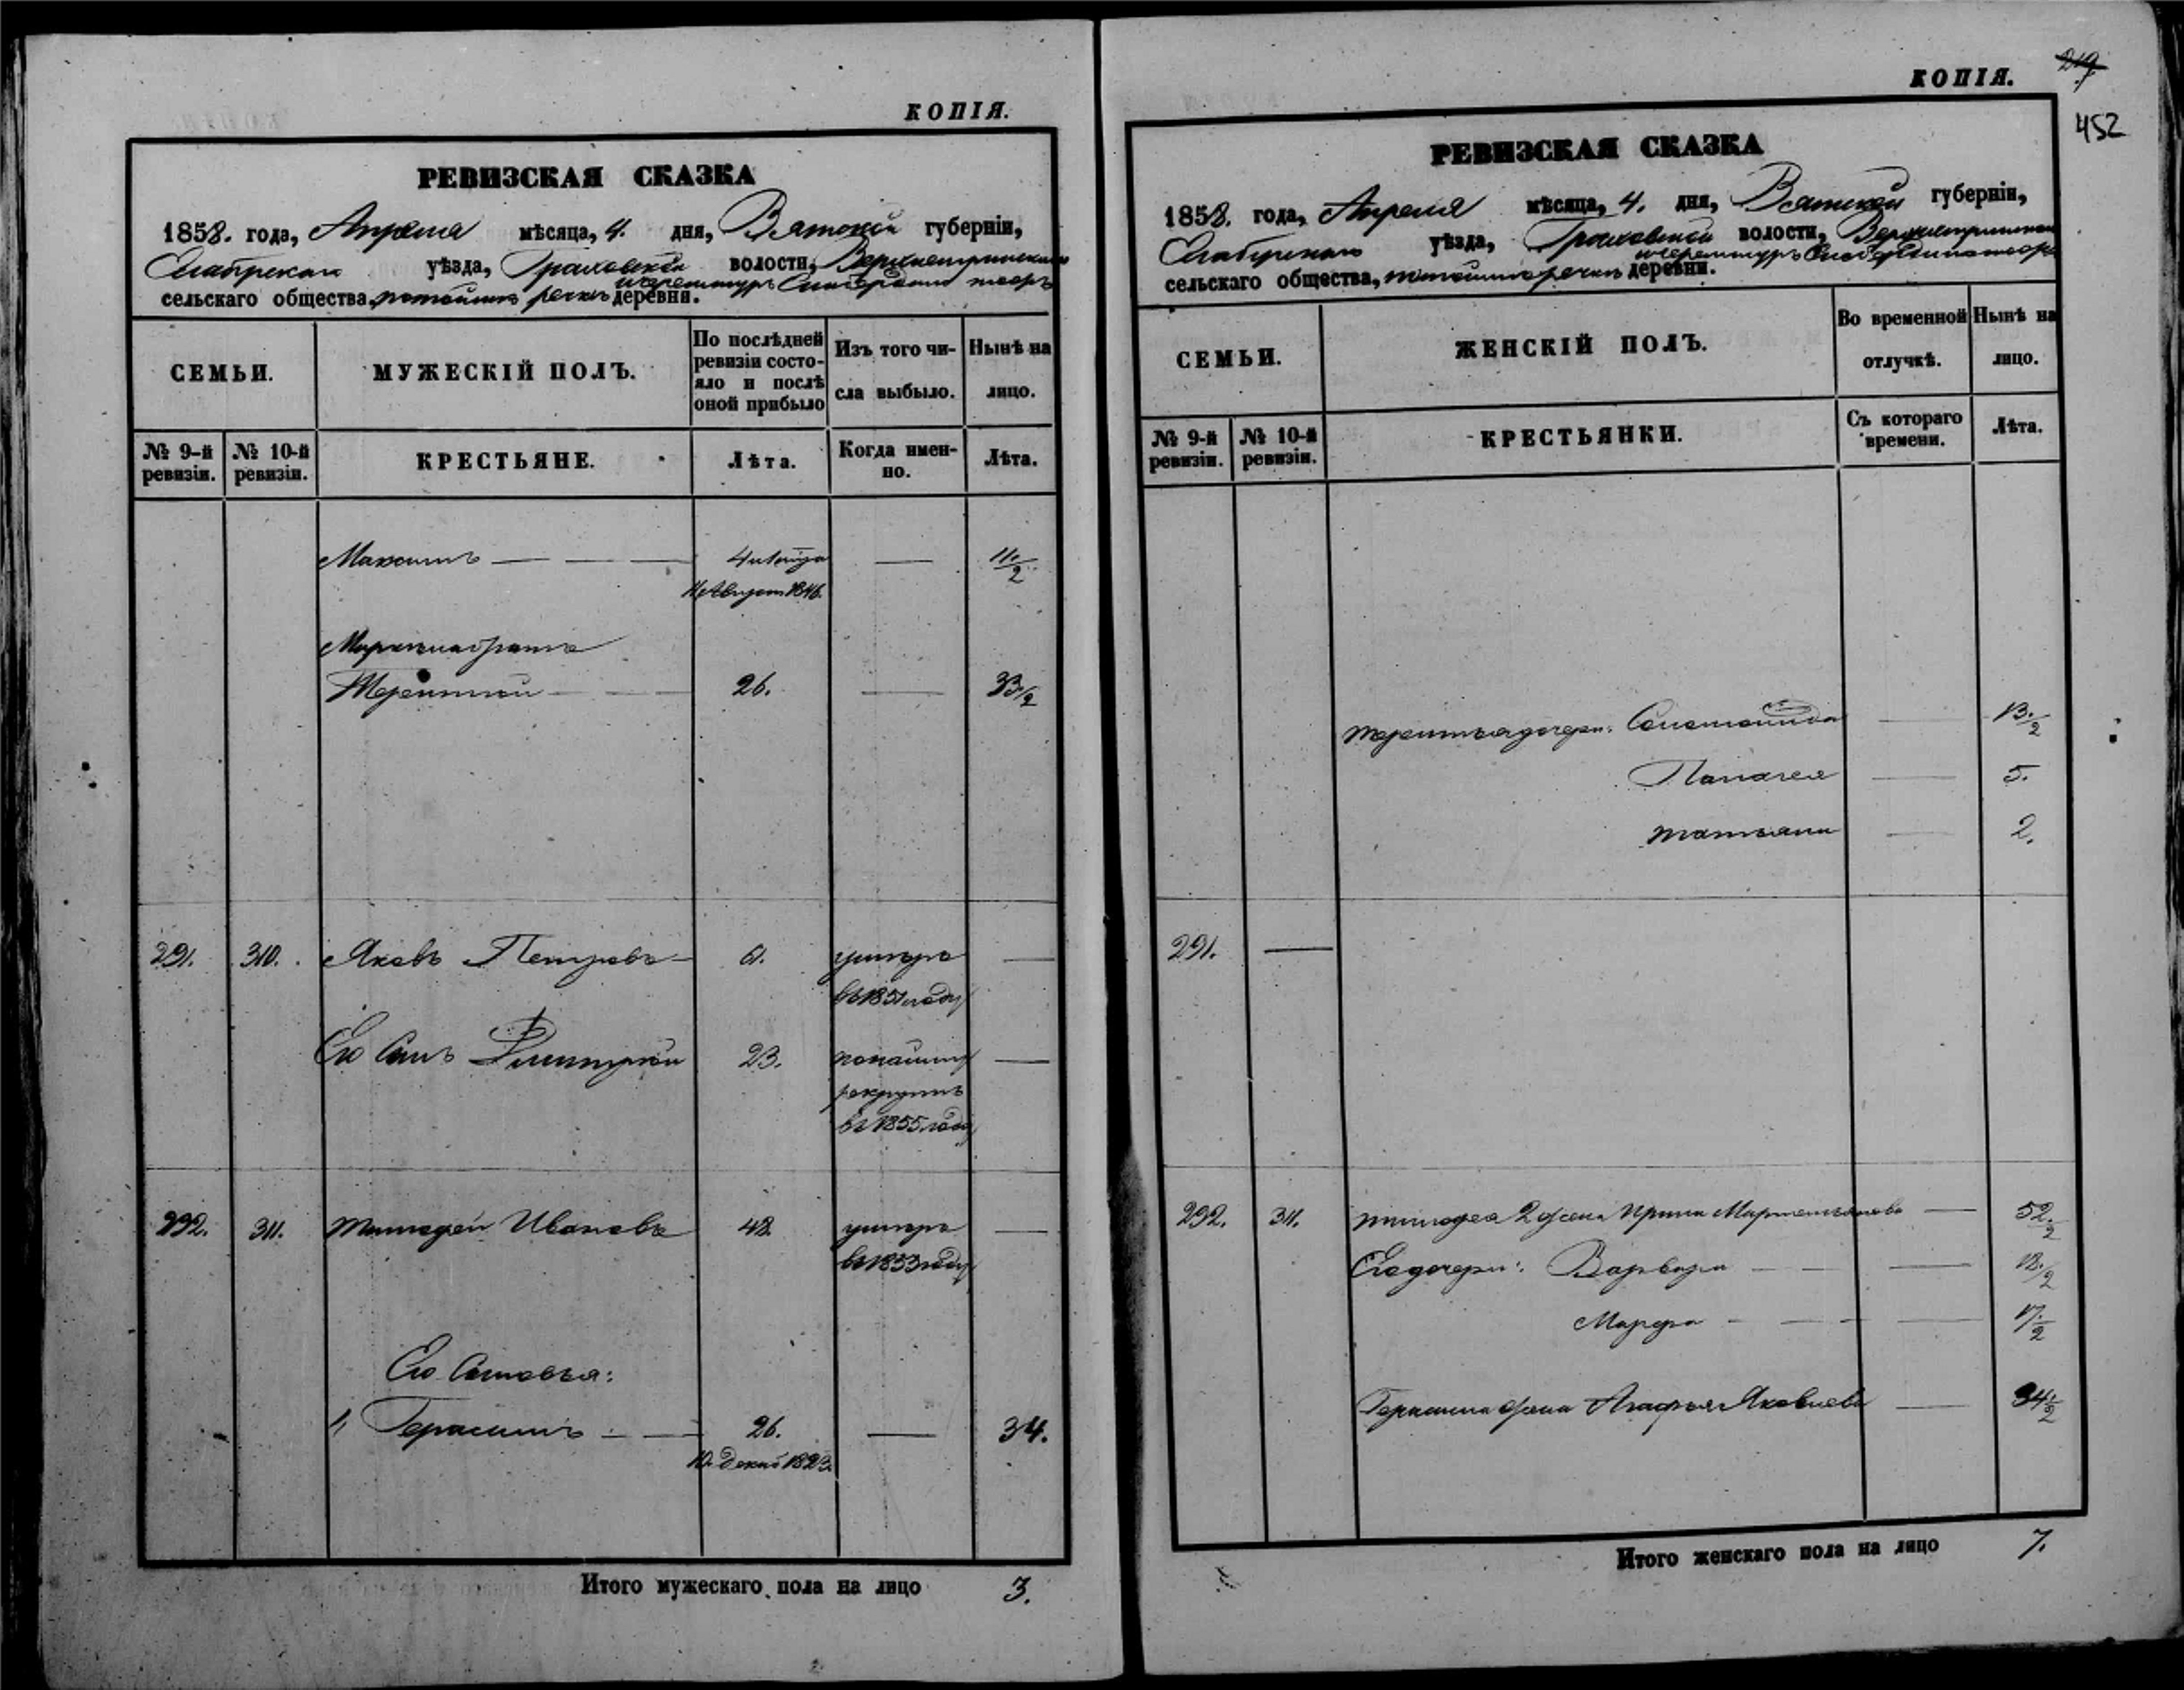 КОПІЯ.
РЕВИЗСКАЯ СКАЗКА
1858. года, Апреля мѣсяца, 4. дня, Вятской губерніи,
уѣзда, Граховской волости,
сельскаго общества, речки деревни.
СЕМЬИ.
МУЖЕСКІЙ ПОЛЪ.
По послѣдней ревизіи состояло и послѣ оной прибыло
Изъ того числа выбыло.
Нынѣ на лицо.
№ 9-й ревизіи.
№ 10-й ревизіи.
КРЕСТЬЯНЕ.
Лѣта.
Когда именно.
Лѣта.
Максимъ — — — — 11 1/2
1846.
Терентий — — 26. — 33 1/2
291. 310. Яковъ Петровъ — 61. умеръ —
въ 1851 году
Его Сынъ Дмитрий 23. —
рекрутъ
въ 1855 году
292. 311. Тимофей Ивановъ 48. умеръ —
въ 1853 году
Его Сыновья:
1, Герасимъ — — 26. — 34.
10. 1823.
Итого мужескаго пола на лицо 3.
КОПІЯ.
219
452
РЕВИЗСКАЯ СКАЗКА
1858. года, Апреля мѣсяца, 4. дня, Вятской губерніи,
Елабужскаго уѣзда, Граховской волости,
сельскаго общества, речки деревни.
СЕМЬИ.
ЖЕНСКІЙ ПОЛЪ.
Во временной отлучкѣ.
Нынѣ на лицо.
№ 9-й ревизіи.
№ 10-й ревизіи.
КРЕСТЬЯНКИ.
Съ котораго времени.
Лѣта.
Терентья дочери: — 13. 1/2
Палагея — 5.
Татьяна — 2.
291. —
292. 311. Тимофея 2 жена Ирина Мартемьянова — 52. 1/2
Его дочери: Варвара — — — 18. 1/2
Марфа — — — — 17. 1/2
Герасима жена Агафья Яковлева — 34 1/2
Итого женскаго пола на лицо 7.